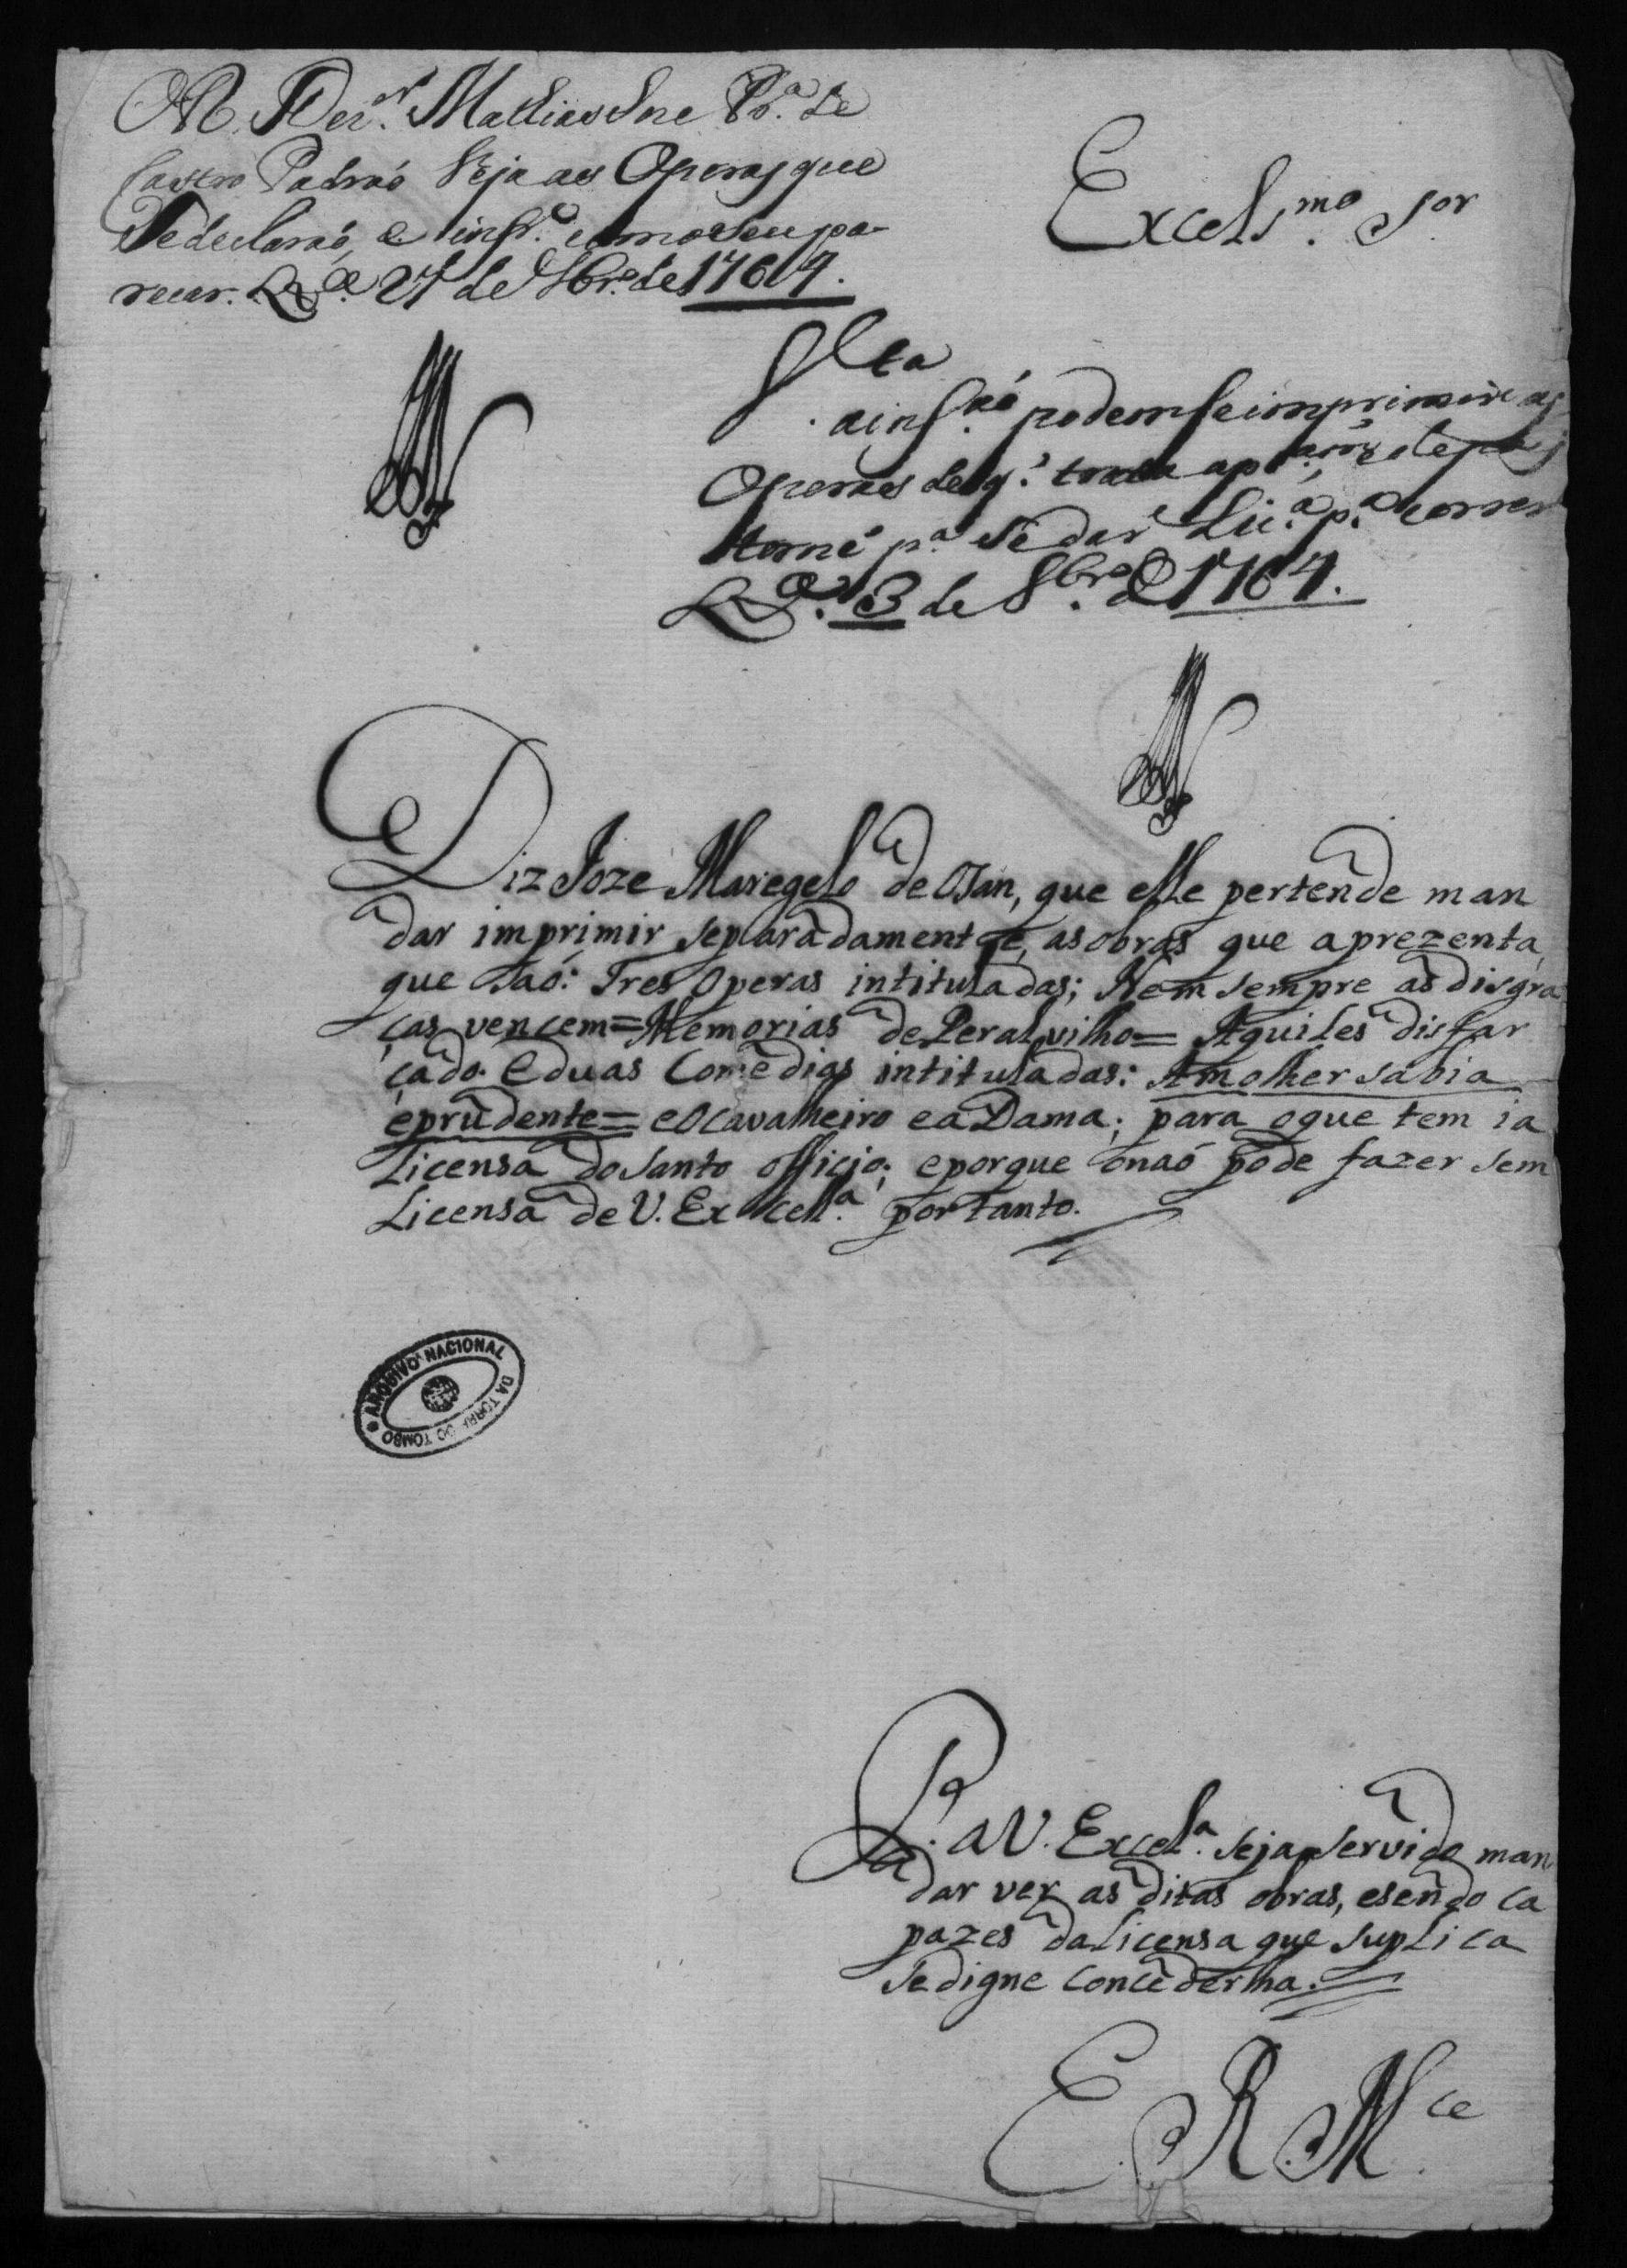 Mathias Joze Pr.ª de
Castro Padraó Veja as Operas que
Se declaraó, e inf.e com o seu pa-
recer. Lx.ª 27 de 7br.º de 1764.
Excels.mo Sor
Vta
a inf.aó podemse imprimir as
Operas de q' trata
torne p.ª se dar Lic.ª p.ª correr
Lx.ª 3 de 8br.º de 1764.
Diz Joze Maregelo de Osan, que elle pertende man
dar imprimir separadamente, as obras que aprezenta,
que saó: Tres Operas intituladas; Nem sempre as disgra
ças vencem= Memorias de Peralvilho= Aquiles disfar
çado. E duas Comedias intituladas: A molher sabia
e prudente= e O Cavalheiro e a Dama; para o que tem ia
Licensa do Santo officio; e porque o naó pode fazer sem
Licensa de V. Excel.ª portanto.
ARQUIVO NACIONAL DA TORRE DO TOMBO
P. a V. Excel.ª seja servido man
dar ver as ditas obras, e sendo ca
pazes da licensa que suplica
se digne concederlha.
E. R. M.ce